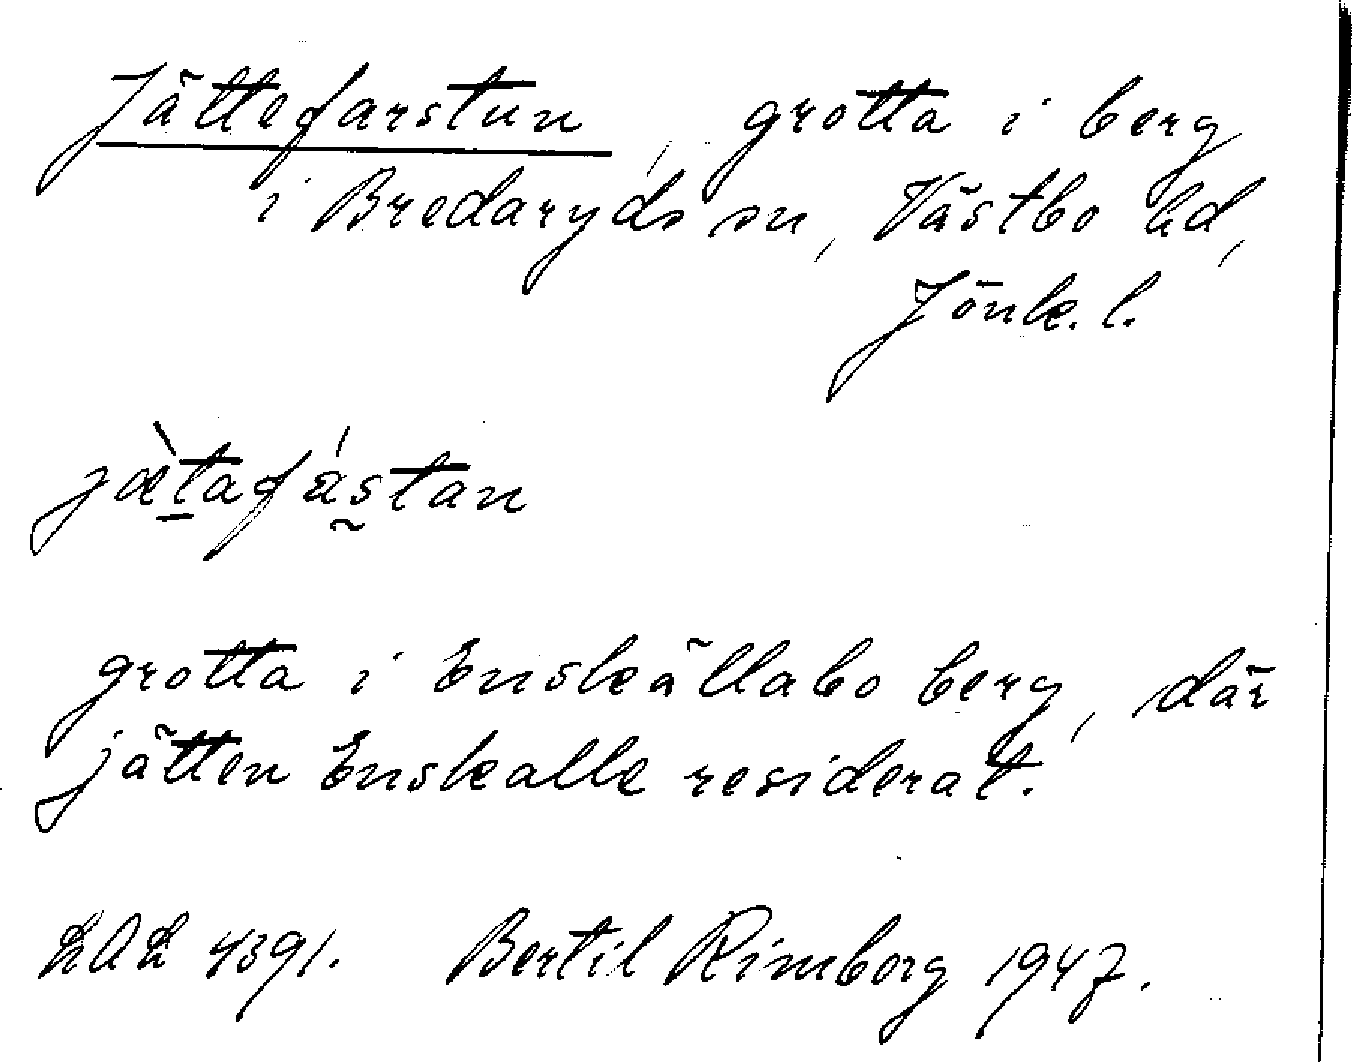 Jättefarstun, grotta i berg
i Bredaryds sn, Västbo hd,
Jönk. l.
jæ̀t̲afást̰an
grotta i Enskällabo berg, där
jätten Enskalle residerat.
LAL 4391. Bertil Rimborg 1947.